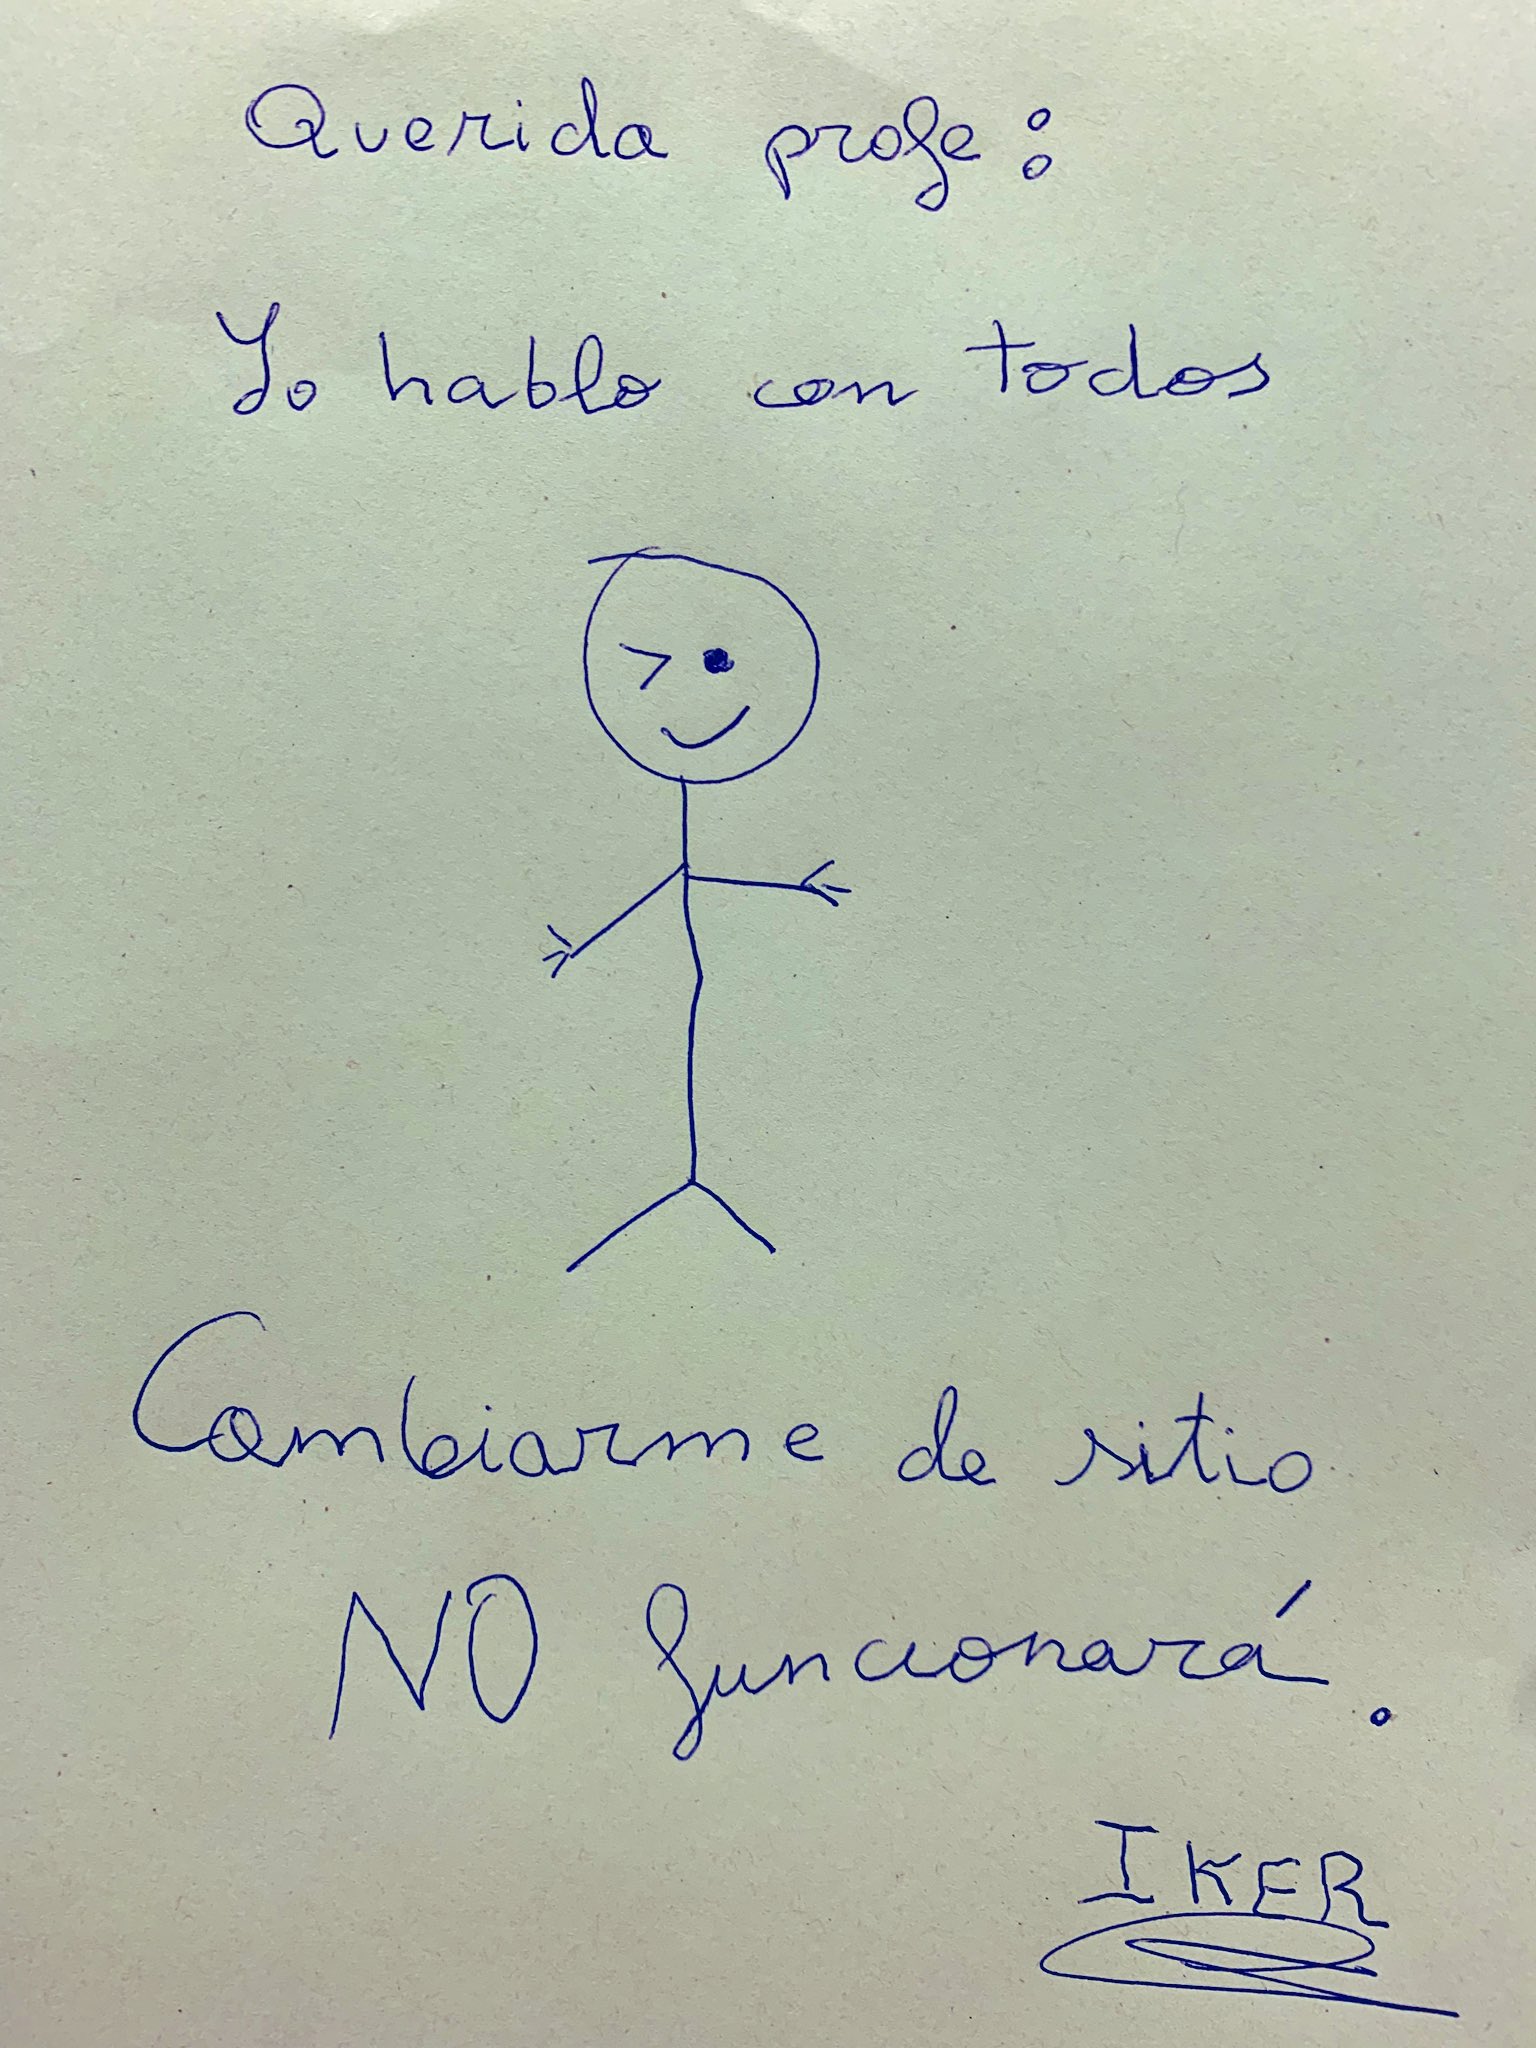 Querida profe:
Yo hablo con todos
Cambiarme de sitio
NO funcionará.
IKER